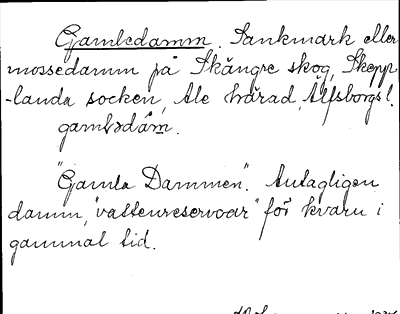 Gamledamm. Sankmark eller
mossedamm på Skångre skog, Skepp
-landa socken, Ale härad, Älfsborgs l.
gamlədåm.
"Gamla Dammen". Antagligen
damm, "vattenreservoar" för kvarn i
gammal tid.